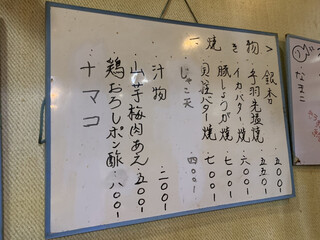 一、焼き物
銀杏 五〇〇
手羽先塩焼 五五〇
イカバター焼 六〇〇
豚しょうが焼 七〇〇
貝柱バター焼 七〇〇
じゃこ天 四〇〇
汁物 二〇〇
山芋梅肉あえ 五〇〇
鶏おろしポン酢 八〇〇
ナマコ
なまこ